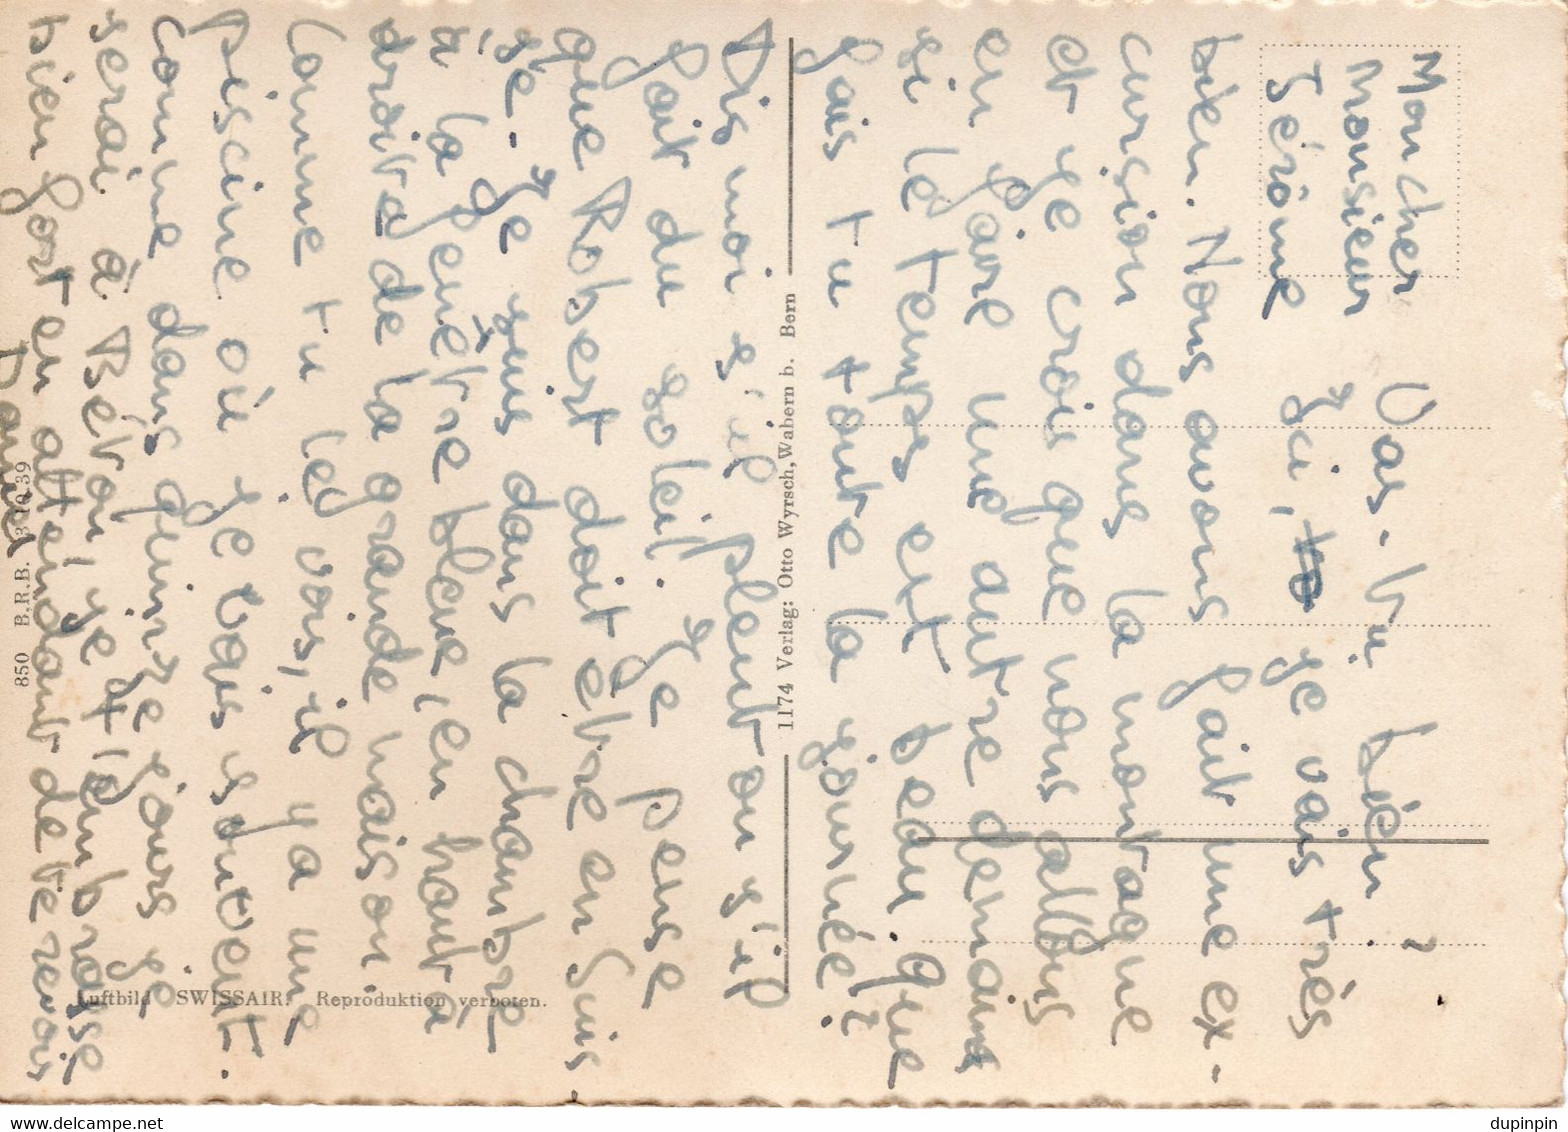 Mon cher
Monsieur
Jérôme
Vas-tu bien ?
Ici, je vais très
bien. Nous avons fait une ex-
cursion dans la montagne
et je crois que nous allons
en faire une autre demain
si le temps est beau. Que
fais tu toute la journée?
Dis moi s'il pleut ou s'il
fait du soleil. Je pense
que Robert doit être en Suis-
se. Je suis dans la chambre
à la fenêtre bleue, en haut à
droite de la grande maison.
Comme tu les vois, il y a une
piscine où je vais souvent.
Comme dans quinze jours je
serai à Béton, je t'embrasse
bien fort en attendant de te revoir
Daniel
1174 Verlag: Otto Wyrsch, Wabern b. Bern
850 B.R.B. 3.10.39
Luftbild SWISSAIR. Reproduktion verboten.
dupinpin